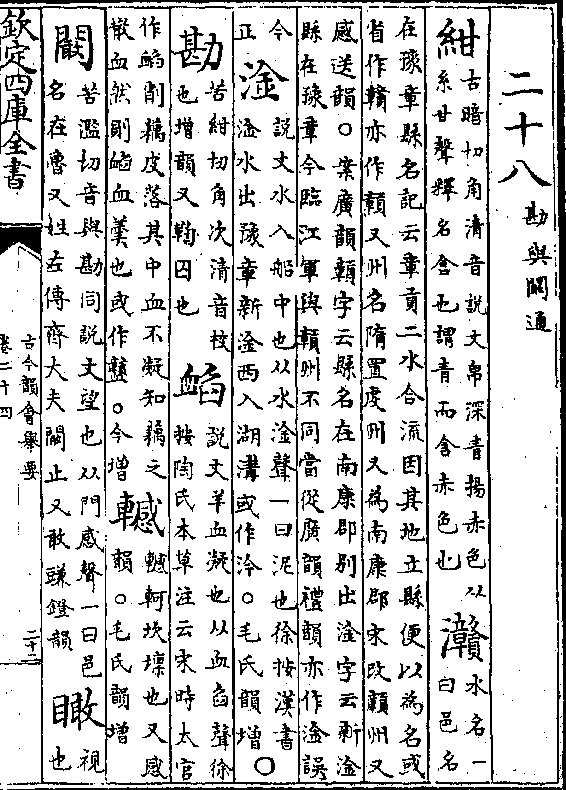 二十八 勘與闞通
紺 古暗切角清音說文帛深青揚赤色从糸甘聲釋名含也謂青而含赤色也 灨 水名一曰邑名
在豫章縣名記云章貢二水合流因其地立縣便以為名或
省作贛亦作贑又州名隋置虔州又為南康郡宋改贑州又
感送韻○案廣韻贑字云縣名在南康郡别出淦字云新淦
縣在豫章今臨江軍與贑州不同當從廣韻禮韻亦作淦誤
今正 淦 說文水入船中也从水淦聲一曰泥也徐按漢書淦水出豫章新淦西入湖漢或作泠○毛氏韻增 ○
勘 苦紺切角次清音校也增韻又鞫囚也 䘓 說文羊血凝也从血臽聲徐按陶氏本草注云宋時太官
作䘓削藕皮落其中血不凝知藕之散血然則䘓血羹也或作○今增 轗 轗軻坎壈也又感韻○毛氏韻增
闞 苦濫切音與勘同說文望也从門感聲一曰邑名在魯又姓左傳齊大夫闞止又敢豏鐙韻 瞰 視也
欽定四庫全書
古今韻會舉要
卷二十四
二十二